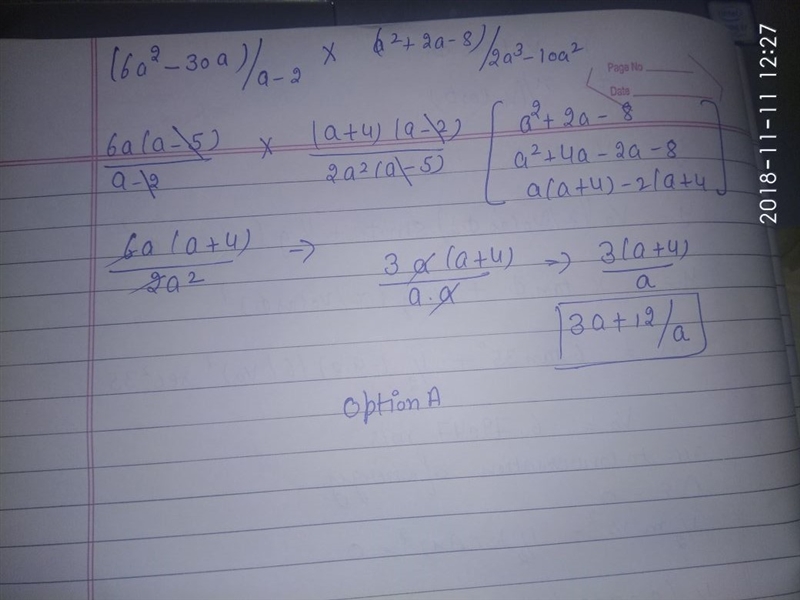 (6a² – 30a)/a – 2 × (a² + 2a – 8)/2a³ – 10a²
Page No
Date
6a(a – 5)/a – 2 × (a + 4)(a – 2)/2a²(a – 5) [a² + 2a – 8
a² + 4a – 2a – 8
a(a + 4) – 2(a + 4]
6a(a + 4)/2a² ⇒ 3a(a + 4)/a·a ⇒ 3(a + 4)/a
3a + 12/a
Option A
2018-11-11 12:27